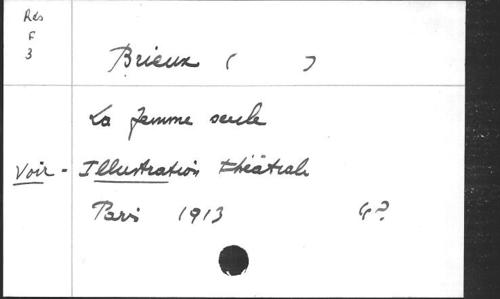 Rés
F
3
Brieux ( )
La femme seule
Voir - Illustration théâtrale
Paris 1913 4º